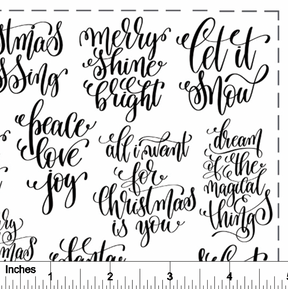 merry
shine
bright
let it
snow
peace
love
joy
all i want
for
christmas
is you
dream
of the
magical
things
Inches
1
2
3
4
5